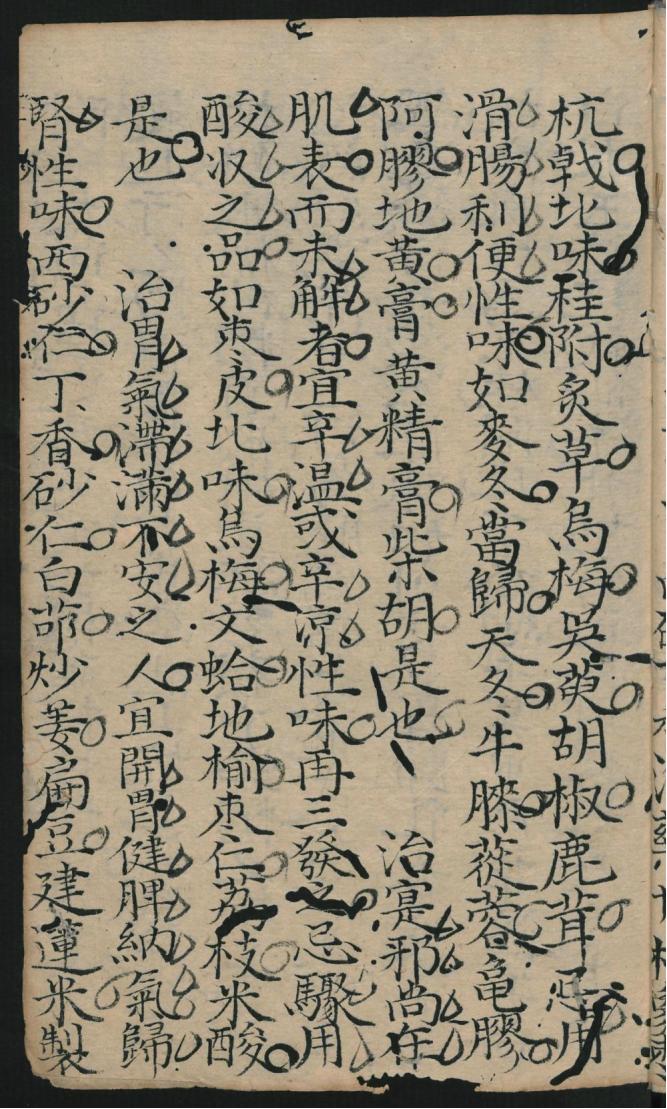 杭戟北味桂附炙草烏梅吳萸胡椒鹿茸忌用
滑腸利便性味如麥冬當歸天冬牛膝蓯蓉龜膠
阿膠地黃膏黃精膏柴胡是也 治寔邪尚在
肌表而未解者宜辛温或辛凉性味再三發之忌驟用
酸収之品如枣皮北味烏梅文蛤地榆枣仁荔枝米酸
是也 治胃氣滯滿不安之人宜開胃健脾納氣歸
腎性味西砂仁丁香砂仁白茆炒姜扁豆建蓮米製